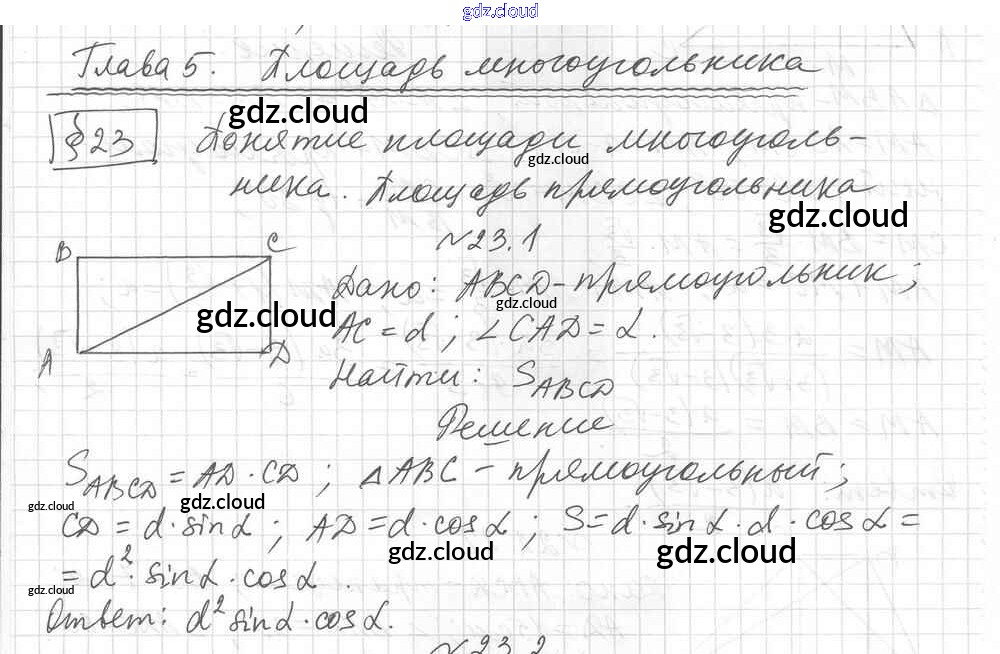 gdz.cloud
Глава 5. Площадь многоугольника
gdz.cloud
§ 23 Понятие площади многоуголь-
gdz.cloud
ника. Площадь прямоугольника
gdz.cloud
№ 23.1
B C
Дано: ABCD - прямоугольник;
gdz.cloud
gdz.cloud
AC = d; ∠CAD = α.
A D
Найти: S_ABCD
Решение
S_ABCD = AD · CD; △ABC - прямоугольный;
gdz.cloud gdz.cloud
CD = d · sin α; AD = d · cos α; S = d · sin α · d · cos α =
gdz.cloud gdz.cloud
= d² · sin α · cos α.
gdz.cloud
Ответ: d² sin α · cos α.
№ 23.2